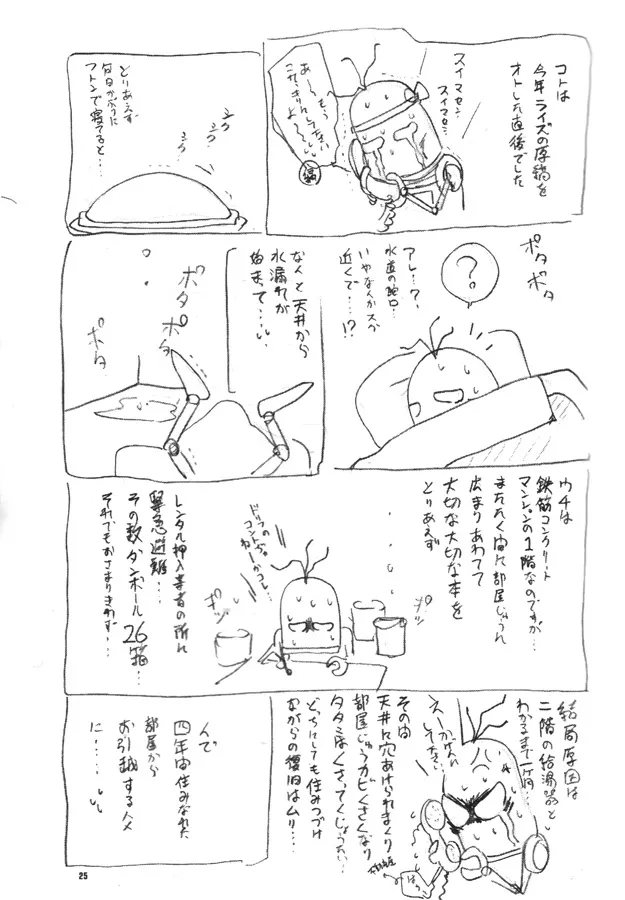 コトは
今年ライズの原稿を
オトした直後でした
スイマセン
スイマセ…
あ～～もう
とりあえず
フトンで寝てると…
ポタ
ポタ
？
アレ…？
水道の蛇口…
いやなんかスが
近くで…!?
なんと天井から
水漏れが
始まて……
ポタ
ポタ
ポタ
ウチは
鉄筋コンクリート
マンションの1階なのですが…
またたく間に部屋じゅうに
広まりあわてて
大切な大切な本を
とりあえず
ドリフの
コントかコレ…
レンタル押入業者の所に
緊急避難…
その数ダンボール26箱…
それでもおさまりきわず…
結局原因は
二階の給湯器と
わかるまで一ヶ月…
その間
天井に穴あけられまくり
部屋じゅうカビくさくなり
タタミはくさってくじょうたい…
どっちにしても住みつづけ
ながらの復旧はムリ…
んで
四年間住みなれた
部屋から
お引越するハメ
に……
25